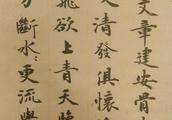 文章建安骨
又清發俱懷
飛欲上青天攬
刀斷水〻更流舉